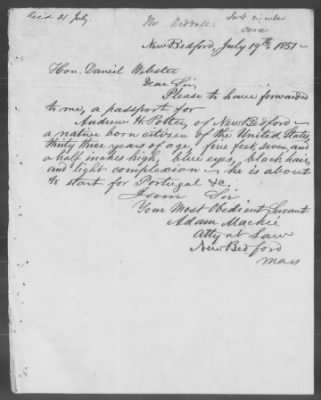 Rec'd 21 July
Mr.
New Bedford, July 19th 1851 -
Hon. Daniel Webster
Dear Sir,
Please to have forwarded
to me, a passport for
Andrew H. Potter, of New Bedford -
a native born citizen of the United States,
thirty three years of age, five feet seven and
a half inches high, blue eyes, black hair,
and light complexion - he is about
to start for Portugal &c.
From Sir
Your Most Obedient Servant
Adam Mackie
Atty at Law
New Bedford
Mass